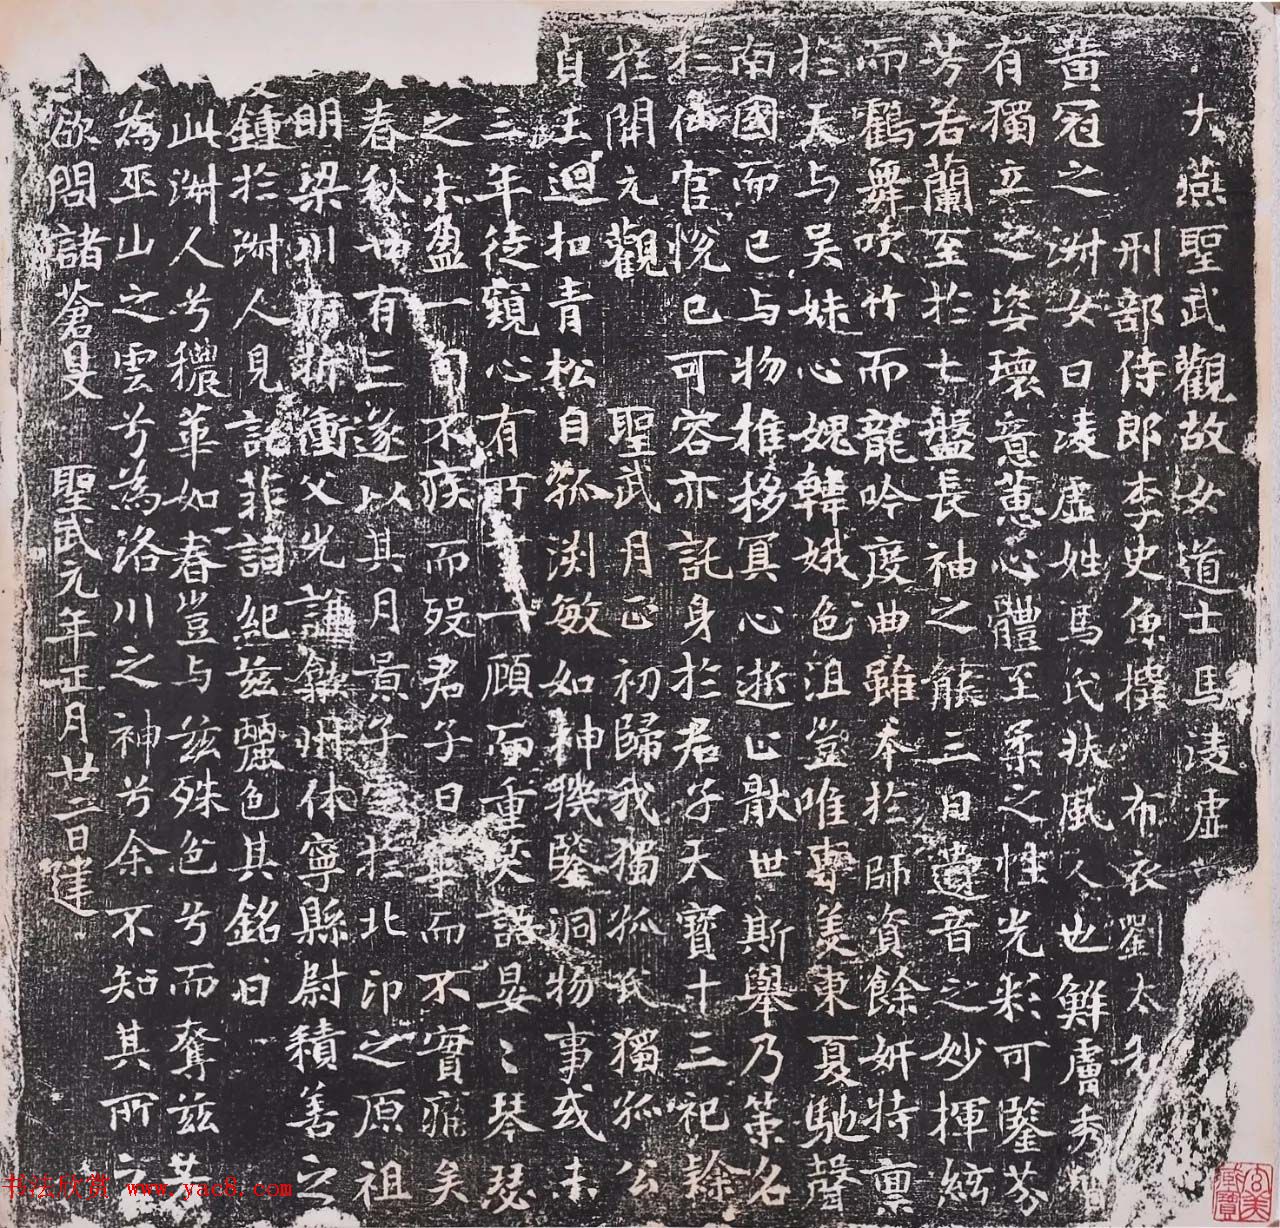 大燕聖武觀故女道士馬凌虛
刑部侍郎李史魚撰 布衣劉太和
黃冠之淋女曰凌虛姓馬氏扶風人也鮮膚秀
有獨立之姿瓌意蕙心體至柔之性光彩可鑒芬
芳若蘭至於七盤長袖之能三日遺音之妙揮絃
而鶴舞吹竹而龍吟度曲雖本於師資餘妍特稟
於天与吴妹心媿韓娥色沮豈唯專美東夏馳聲
南國而已与物推移冥心逝止猒世斯舉乃策名
於仙官悅已可容亦託身於君子天寶十三祀隸
於開元觀 聖武月正初歸我獨孤氏獨孤公
貞玉迴扣青松自孤渊敏如神機鑒洞物事或未
三年徒窺心有所一顧而重笑語晏〻琴瑟
之未盈一旬不疾而歿君子曰華而不實痛矣
春秋廿有三遂以其月景子窆於北邙之原祖
明梁川府折衝父光謙歙州休寧縣尉積善之
鍾於淋人見託菲詞紀茲麗色其銘曰
此淋人兮穠華如春豈与茲殊色兮而奪茲芳
為巫山之雲兮為洛川之神兮余不知其所之
欲問諸蒼旻 聖武元年正月廿二日建
书法欣赏 www.yac8.com